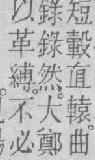 短轂直轅曲
錄錄然大鄭
以革縛不必